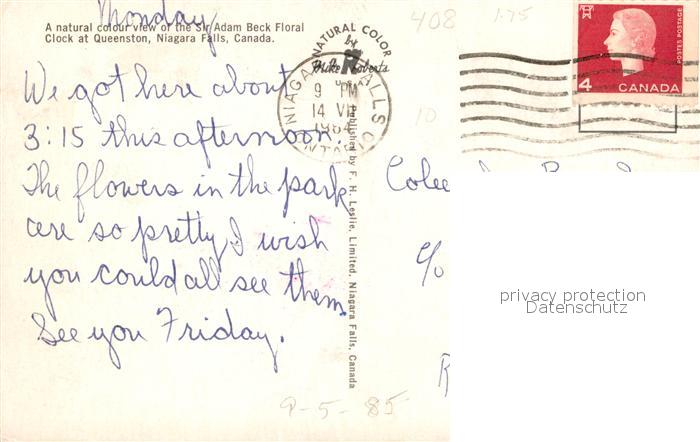 Monday
A natural colour view of the Sir Adam Beck Floral
Clock at Queenston, Niagara Falls, Canada.
We got here about
3:15 this afternoon
The flowers in the park
are so pretty I wish
you could all see them.
See you Friday.
NATURAL COLOR
by
Mike Roberts
NIAGARA FALLS
9 PM
14 VII
1964
Published by F. H. Leslie, Limited, Niagara Falls, Canada
408
1.75
10
POSTES POSTAGE
4 CANADA
c/o
R
privacy protection
Datenschutz
9-5-85